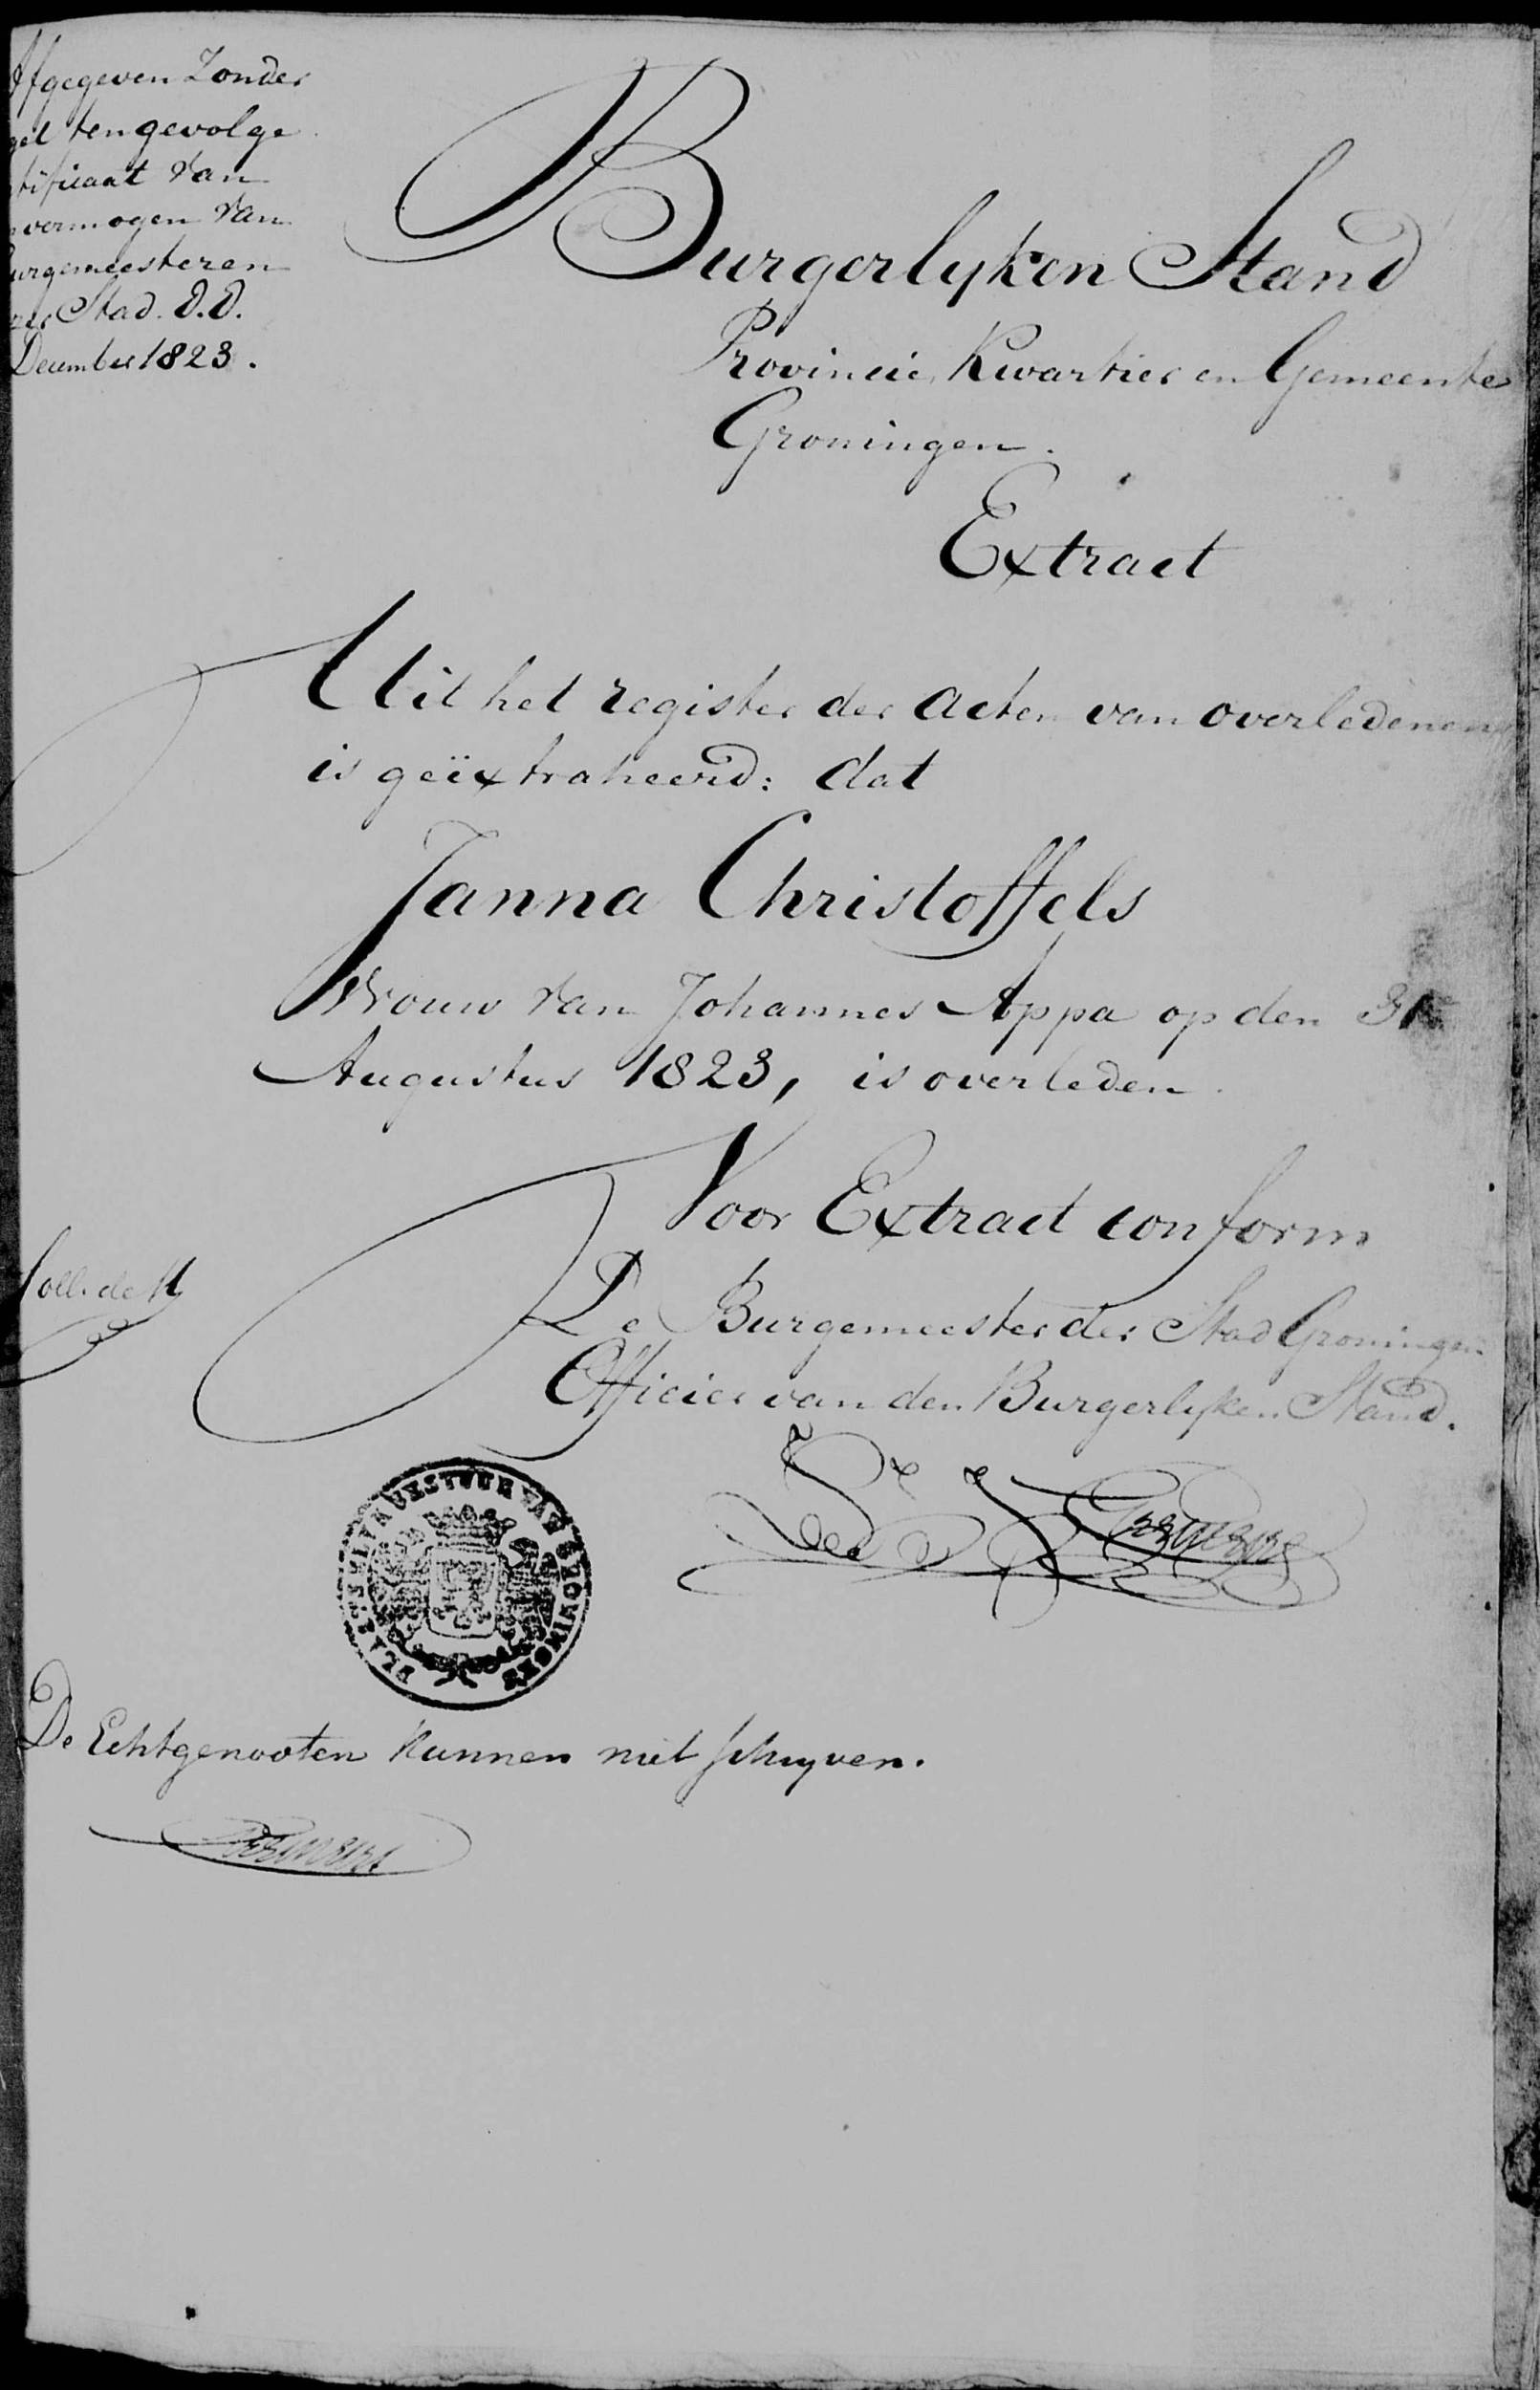 Afgegeven Zonder
gel ten gevolge
tificaat van
vermogen van
urgemeesteren
zer Stad. d.d.
December 1823.
Burgerlyken Stand
Provincie, Kwartier en Gemeente
Groningen.
Extract
Uit het register der acten van overledenen
is geëxtraheerd: dat
Janna Christoffels
Vrouw van Johannes Appa op den 31
Augustus 1823, is overleden.
Voor Extract conform
Coll. de
De Burgemeester der Stad Groningen
Officier van den Burgerlyken Stand.
PLAATSELYK BESTUUR VAN GRONINGEN
De Echtgenooten kunnen niet schryven.